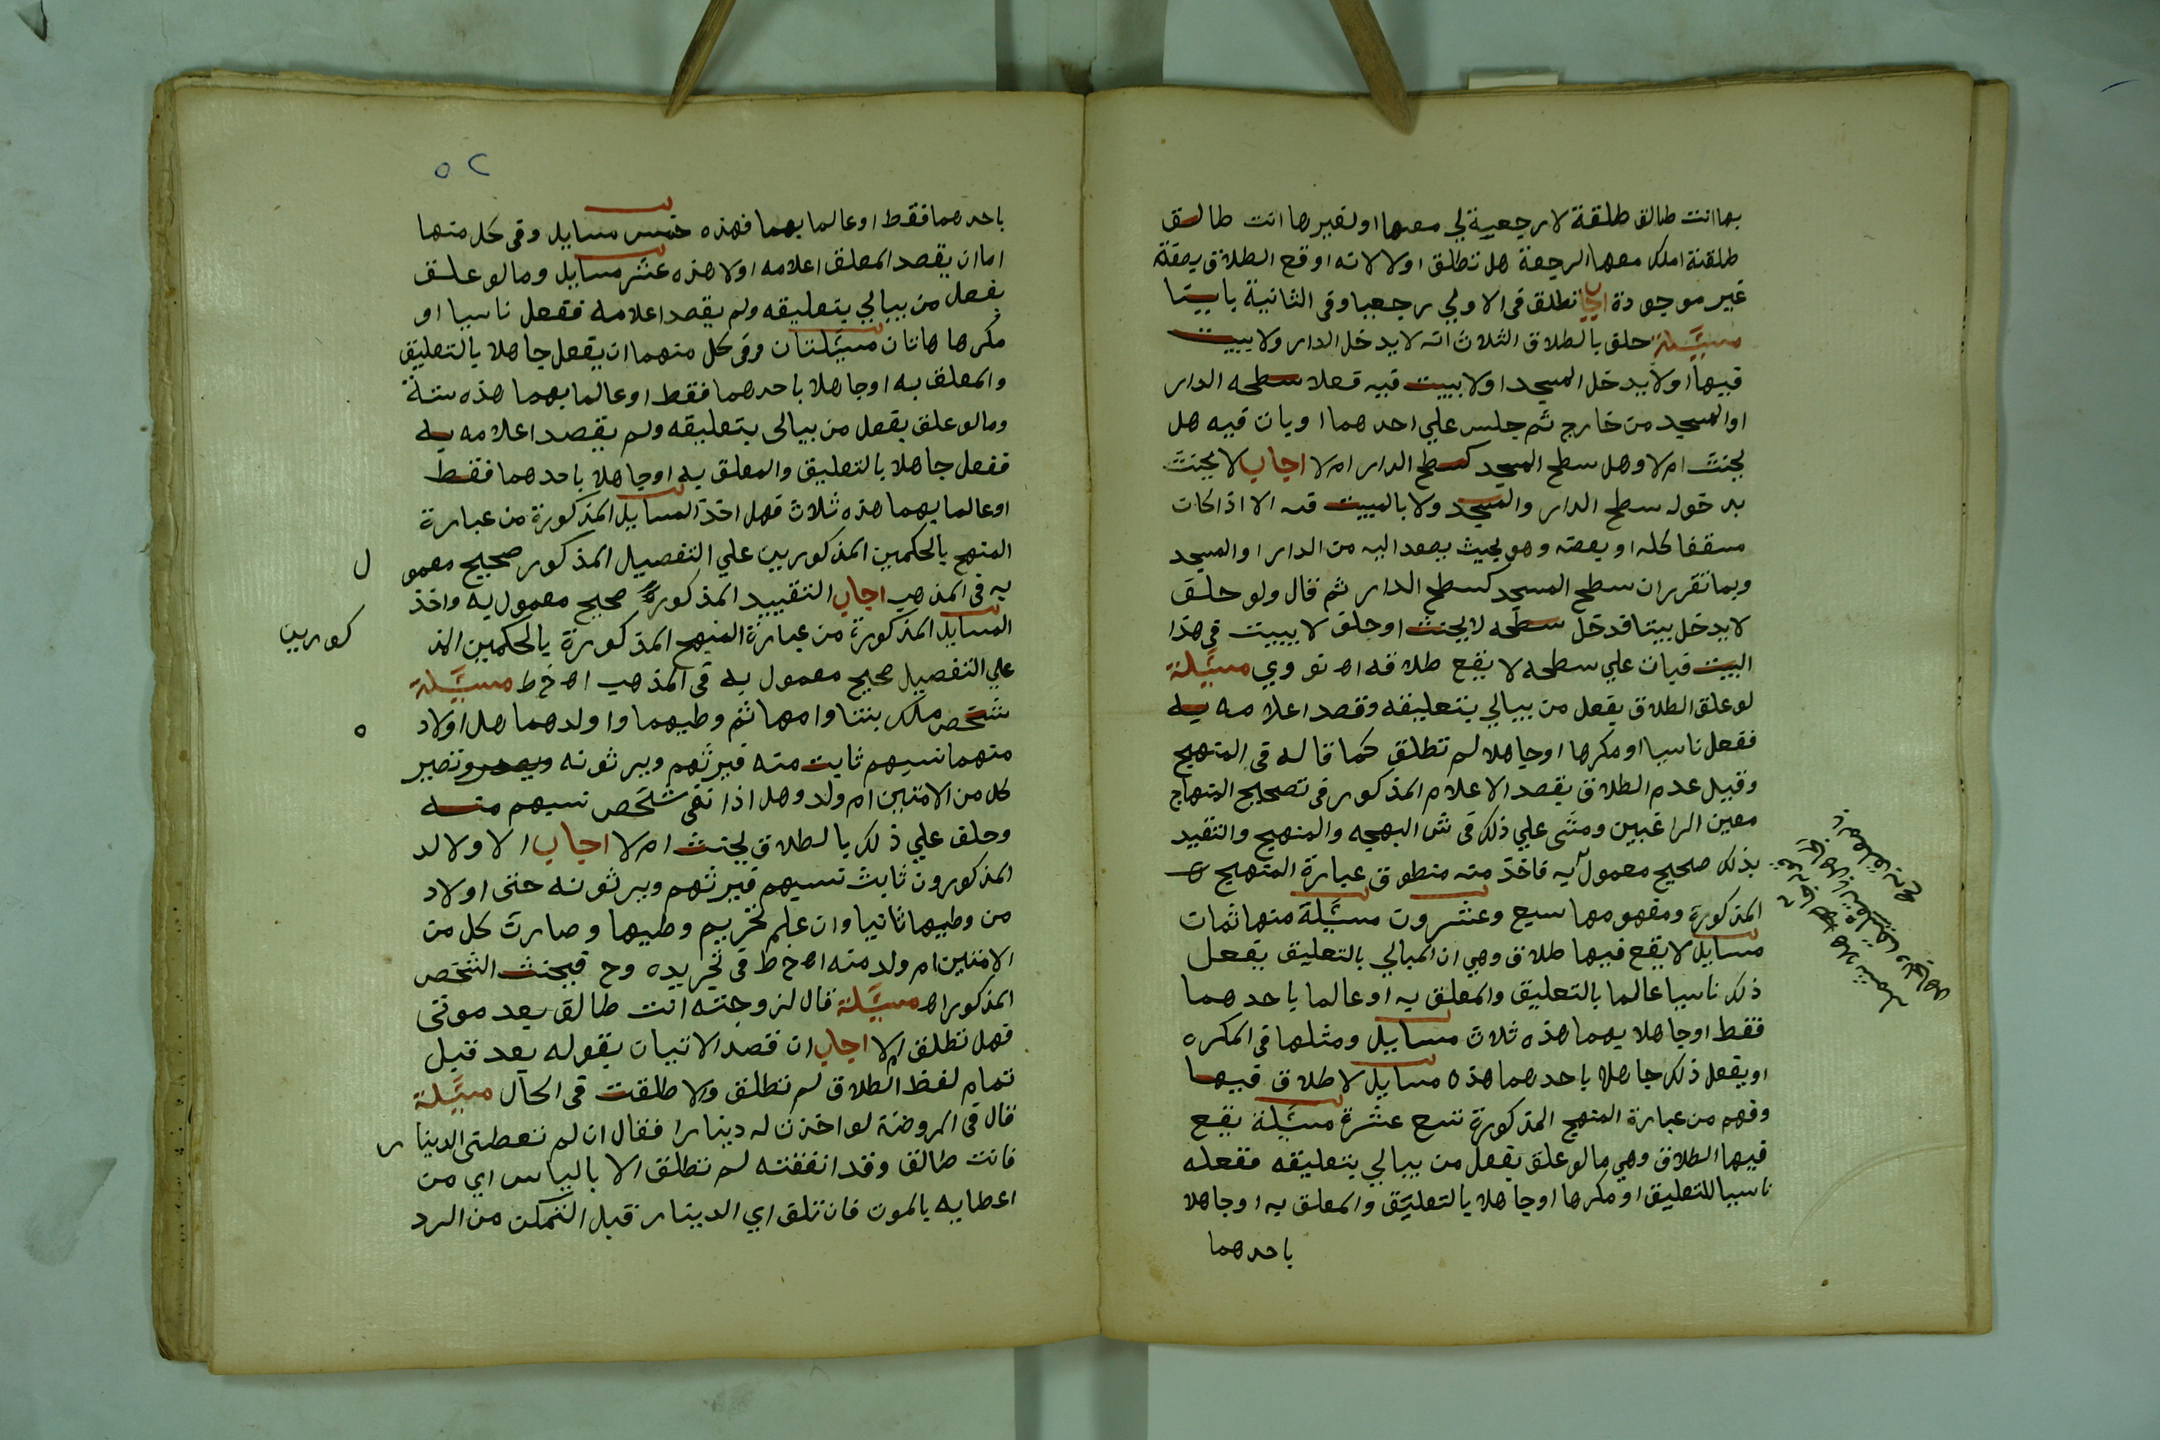 بها انت طالق طلقة لا رجعية لي معها او لغيرها انت طالق
طلقة املك معها الرجعة هل تطلق اولا لانه اوقع الطلاق بصفة
غير موجودة اجاب تطلق في الاولي رجعيا وفي الثانية باينا
مسئلة حلف بالطلاق الثلاث انه لا يدخل الدار ولا يبيت
فيها او لا يدخل المسجد او لا يبيت فيه فعلا سطحه الدار
او المسجد من خارج ثم جلس علي احدهما او بات فيه هل
يحنث ام لا وهل سطح المسجد كسطح الدار ام لا اجاب لا يحنث
بدخوله سطح الدار والمسجد ولا بالمبيت فيه الا اذا كان
مسقفا كله او بعضه وهو بحيث يصعد اليه من الدار او المسجد
وبما تقرر ان سطح المسجد كسطح الدار ثم قال ولو حلف
لا يدخل بيتا فدخل سطحه لا يحنث او حلف لا يبيت في هذا
البيت فبات علي سطحه لا يقع طلاقه اه نووي مسئلة
لو علق الطلاق بفعل من يبالي بتعليقه وقصد اعلامه به
ففعل ناسيا او مكرها او جاهلا لم تطلق كما قاله في المنهج
وقيل عدم الطلاق بقصد الاعلام المذكور في تصحيح المنهاج
معين الراغبين ومشى علي ذلك في ش البهجه والمنهج والتقيد
بذلك صحيح معمول به فاخذ منه منطوق عبارة المنهج
المذكورة ومفهومها سبع وعشرون مسئلة منها ثمان
مسايل لا يقع فيها طلاق وهي ان المبالي بالتعليق يفعل
ذلك ناسيا عالما بالتعليق والمعلق به او عالما باحدهما
فقط او جاهلا بهما هذه ثلاث مسايل ومثلها في المكره
او يفعل ذلك جاهلا باحدهما هذه مسايل لا طلاق فيها
وفهم من عبارة المنهج المذكورة تسع عشرة مسئلة يقع
فيها الطلاق وهي ما لو علق بفعل من يبالي بتعليقه ففعله
ناسيا للتعليق او مكرها او جاهلا بالتعليق والمعلق به او جاهلا
باحدهما
٥٢
باحدهما فقط او عالما بهما فهذه خمس مسايل وفي كل منها
اما ان يقصد المعلق اعلامه اولا هذه عشر مسايل وما لو علق
بفعل من يبالي بتعليقه ولم يقصد اعلامه ففعل ناسيا او
مكرها هاتان مسئلتان وفي كل منهما ان يفعل جاهلا بالتعليق
والمعلق به او جاهلا باحدهما فقط او عالما بهما هذه ستة
وما لو علق بفعل من يبالى بتعليقه ولم يقصد اعلامه به
ففعل جاهلا بالتعليق والمعلق به او جاهلا باحدهما فقط
او عالما بهما هذه ثلاث فهل اخذ المسايل المذكورة من عبارة
المنهج بالحكمين المذكورين علي التفصيل المذكور صحيح معمو
ل
به في المذهب اجاب التقييد المذكور صحيح معمول به واخذ
المسايل المذكورة من عبارة المنهج المذكورة بالحكمين المذ
كورين
علي التفصيل صحيح معمول به في المذهب اه خ ط مسئلة
شخص ملك بنتا وامها ثم وطيهما واولدهما هل اولاد
ه
منهما نسبهم ثابت منه فيرثهم ويرثونه وتصير
كل من الامتين ام ولد وهل اذا نفى شخص نسبهم منه
وحلف علي ذلك بالطلاق يحنث ام لا اجاب الاولاد
المذكورون ثابث نسبهم فيرثهم ويرثونه حتى اولاد
من وطيها ثانيا وان علم تحريم وطيها وصارت كل من
الامتين ام ولد منه اه خ ط في تجريده وح فيحنث الشخص
المذكور اه مسئلة قال لزوجته انت طالق بعد موتى
فهل تطلق ام لا اجاب ان قصد الاتيان بقوله بعد قبل
تمام لفظ الطلاق لم تطلق والا طلقت في الحال مسئلة
قال في الروضة لو اخذت له دينارا فقال ان لم تعطني الدينار
فانت طالق وقد انفقته لم تطلق الا بالياس اي من
اعطايه بالموت فان تلف اي الدينار قبل التمكن من الرد